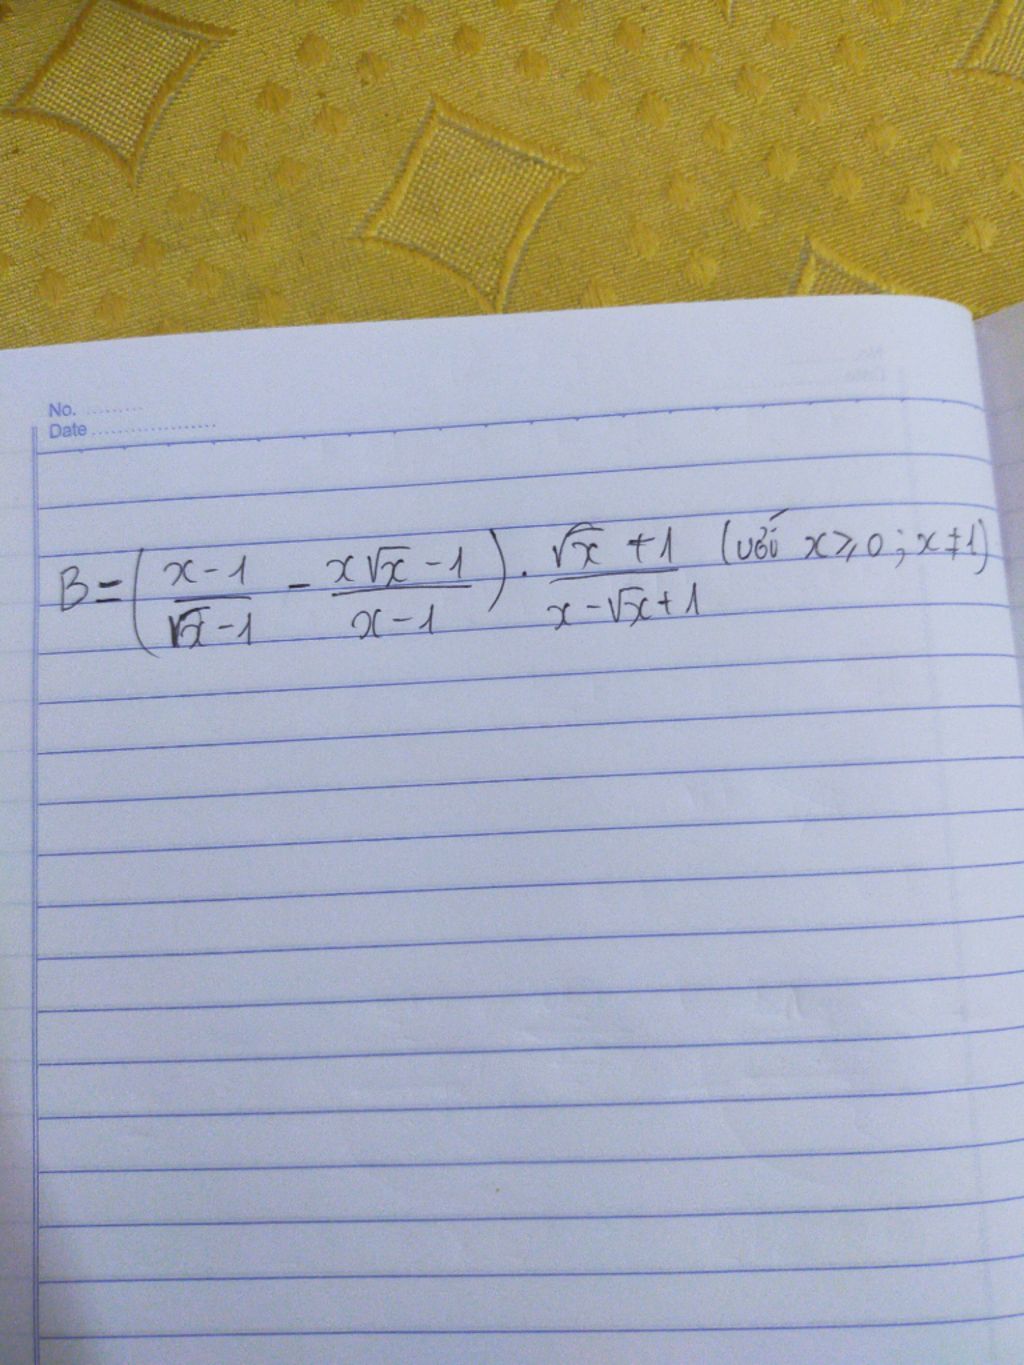 No. ..........
Date ....................
B = ( \frac{x-1}{\sqrt{x}-1} - \frac{x\sqrt{x}-1}{x-1} ) . \frac{\sqrt{x}+1}{x-\sqrt{x}+1} (với x ⩾ 0 ; x ≠ 1)